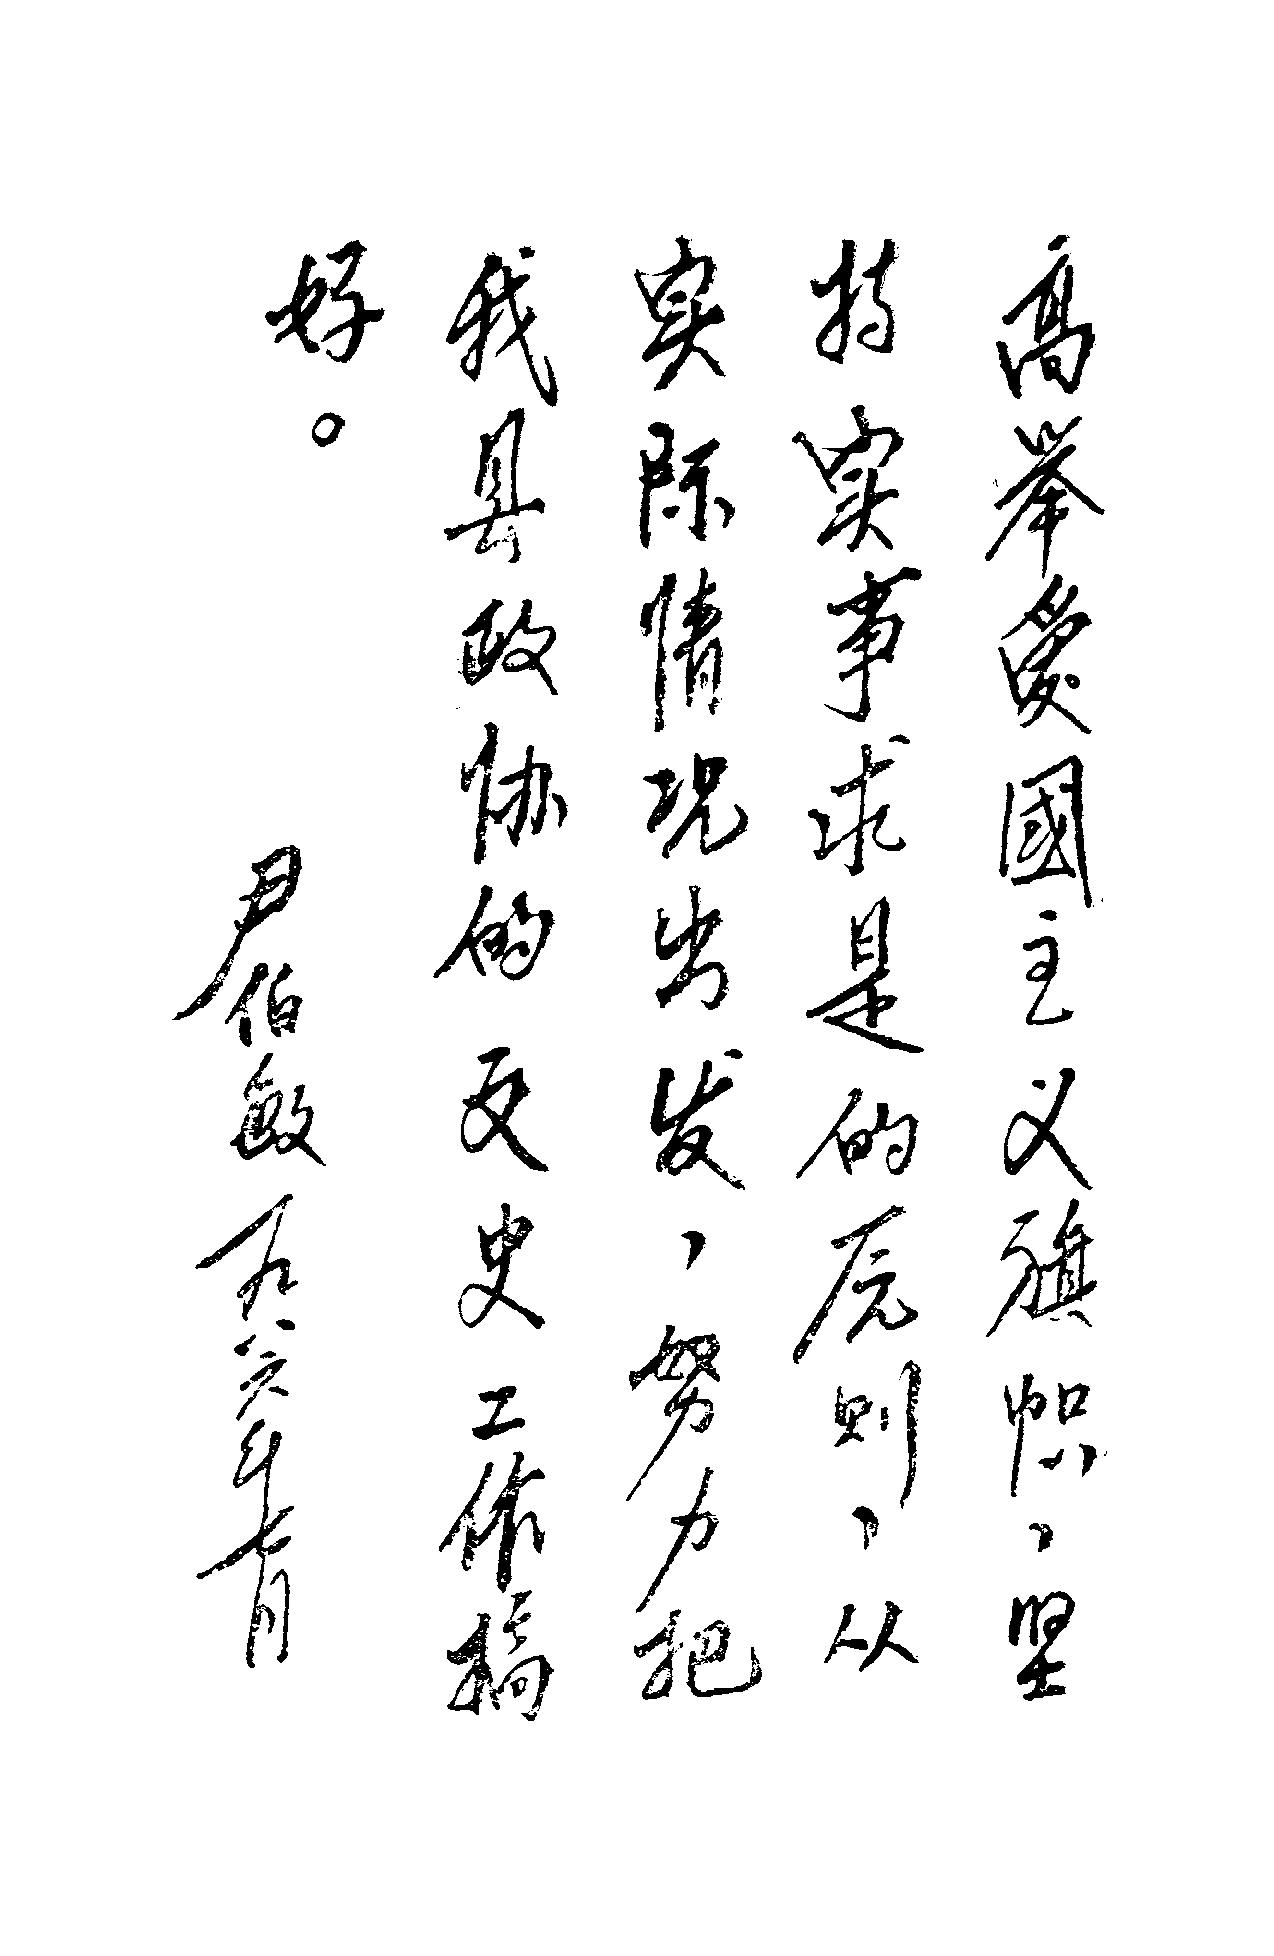 高举愛國主义旗帜，坚
持实事求是的原则，从
实际情况出发，努力把
我县政协的文史工作搞
好。
尹伯敏 一九八六年七月